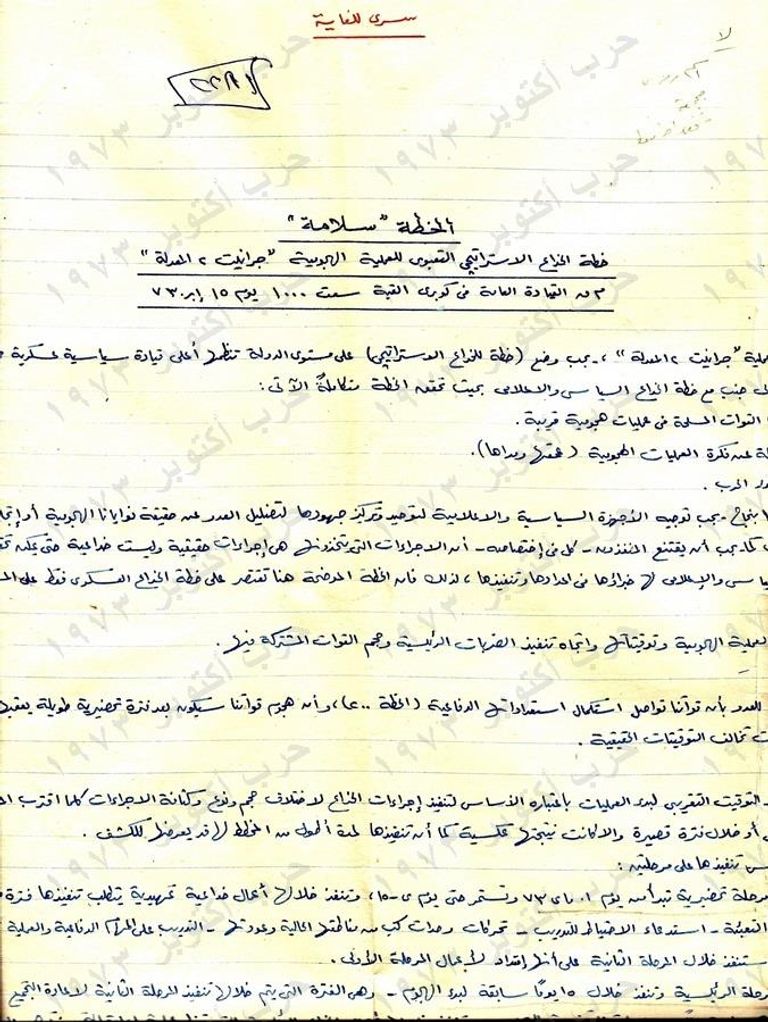 سرى للغاية
لا
الخطة "سلامة"
خطة الخداع الاستراتيجى التعبوى للعملية الهجومية "جرانيت ٢ المعدلة"
م من القيادة العامة فى كوبرى القبة سعت ١٠٠٠ يوم ١٥ إبر ٧٣
"جرانيت ٢ المعدلة"، يجب وضع (خطة للخداع الاستراتيجى) على مستوى الدولة تنظمها أعلى قيادة سياسية عسكرية
جنب مع خطة الخداع السياسى والاعلامى بحيث تحقق الخطة متكاملة الآتى:
القوات المسلحة فى عمليات هجومية قريبة.
عن فكرة العمليات الهجومية (عمقها ومداها).
الحرب.
بنجاح - يجب توجيه الأجهزة السياسية والاعلامية لتوحيد وتركيز جهودها لتضليل العدو عن حقيقة نوايانا الهجومية أو
كما يجب أن يقتنع المنفذون - كل فى إختصاصه - أن الاجراءات التى يتخذونها هى إجراءات حقيقية وليست خداعية حتى يمكن
والإعلامى لها خبراؤها فى اعدادها وتنفيذها، لذلك فان الخطة الموضحة هنا تقتصر على خطة الخداع العسكرى فقط على
الهجومية وتوقيتاتها واتجاه تنفيذ الضربات الرئيسية وحجم القوات المشتركة فيها.
للعدو بأن قواتنا تواصل استكمال استعداداتها الدفاعية (الخطة ٢٠٠)، وأن هجوم قواتنا سيكون بعد فترة تحضيرية طويلة
تخالف التوقيتات الحقيقية.
التوقيت التقريبى لبدء العمليات باعتباره الأساس لتنفيذ إجراءات الخداع لاختلاف حجم ونوع وكثافة الاجراءات كلما اقترب
أو خلال فترة قصيرة والا كانت نتيجتها عكسية كما أن تنفيذها لمدة أطول من المخطط لها قد يعرضها للكشف.
تنفيذها على مرحلتين:
مرحلة تحضيرية تبدأ من يوم ٠١ مايو ٧٣ وتستمر حتى يوم ى-١٥، وتنفذ خلالها أعمال خداعية تمهيدية يتطلب تنفيذها فترة
التعبئة - استدعاء الاحتياط للتدريب - تحركات وحدات كب من مناطقها الحالية وعودتها - التدريب على المهام الدفاعية والعملية
ستنفذ خلال المرحلة الثانية على أنها إمتداد لأعمال المرحلة الأولى.
الرئيسية وتنفذ خلال ١٥ يوماً سابقة لبدء الهجوم - وهى الفترة التى يتم خلالها تنفيذ المرحلة الثانية لاعادة التجميع
حرب أكتوبر ١٩٧٣